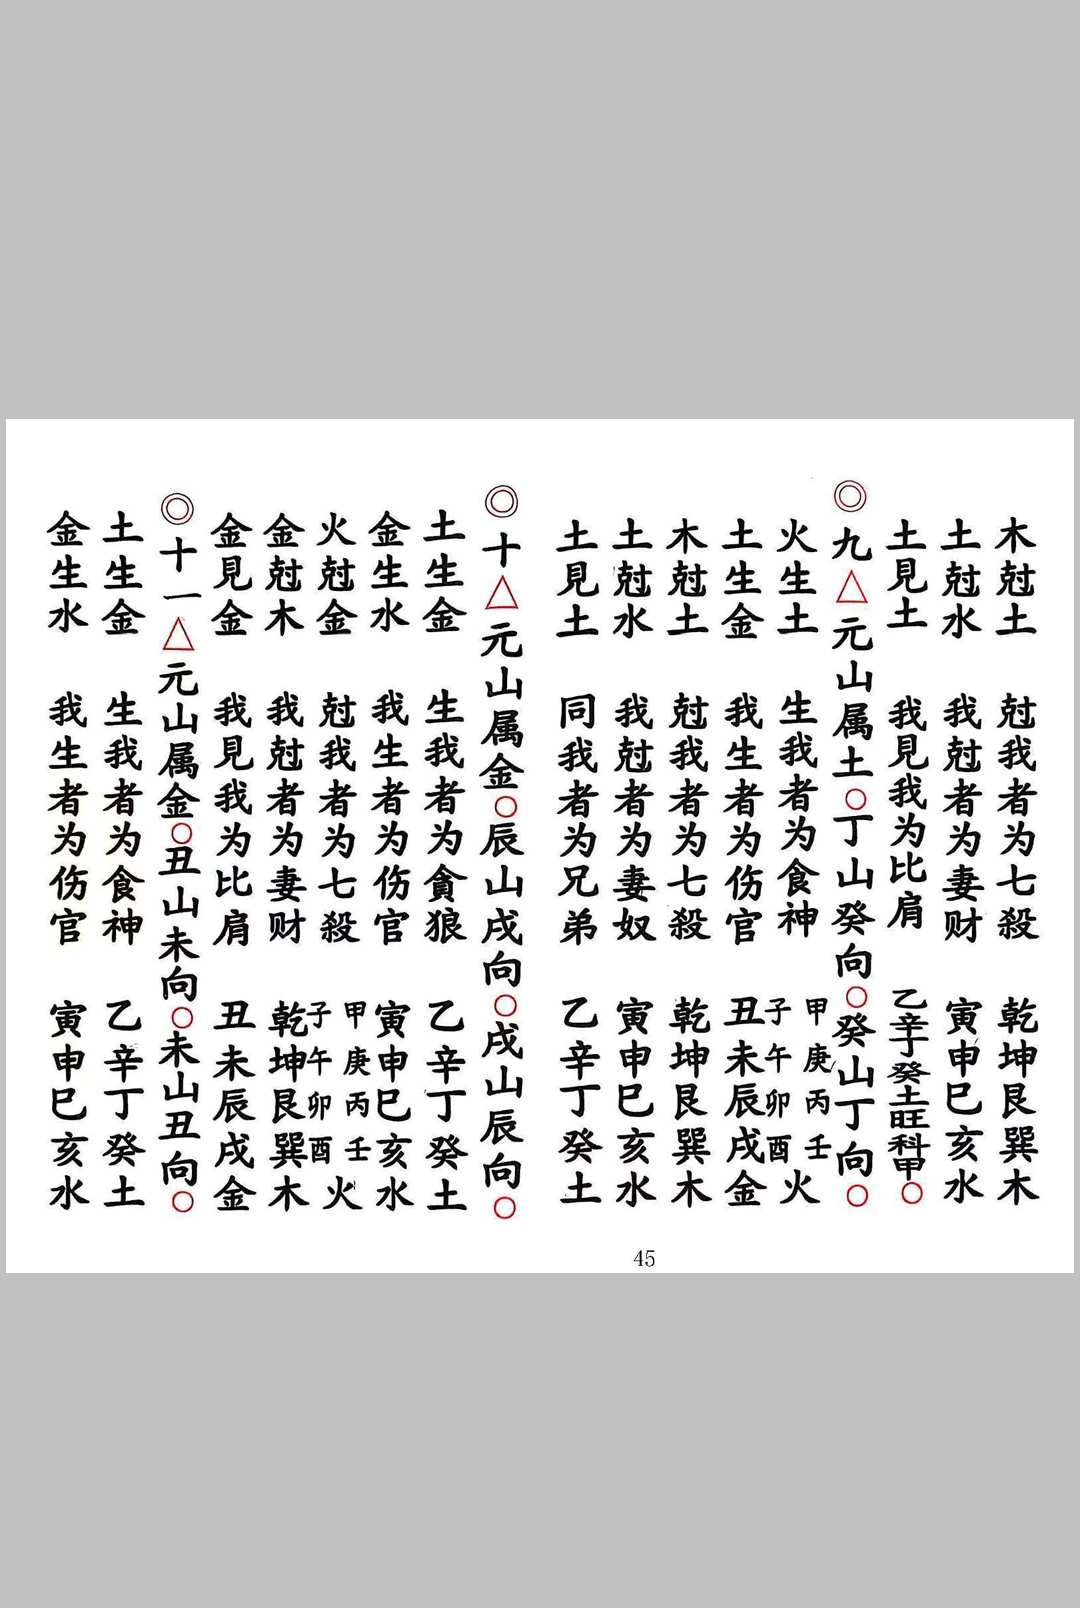 木尅土 尅我者为七殺 乾坤艮巽木
土尅水 我尅者为妻财 寅申巳亥水
土見土 我見我为比肩 乙辛丁癸土旺科甲○
◎九△元山属土○丁山癸向○癸山丁向○
火生土 生我者为食神 甲庚丙壬子午卯酉火
土生金 我生者为伤官 丑未辰戌金
木尅土 尅我者为七殺 乾坤艮巽木
土尅水 我尅者为妻奴 寅申巳亥水
土見土 同我者为兄弟 乙辛丁癸土
◎十△元山属金○辰山戌向○戌山辰向○
土生金 生我者为貪狼 乙辛丁癸土
金生水 我生者为伤官 寅申巳亥水
火尅金 尅我者为七殺 甲庚丙壬子午卯酉火
金尅木 我尅者为妻财 乾坤艮巽木
金見金 我見我为比肩 丑未辰戌金
◎十一△元山属金○丑山未向○未山丑向○
土生金 生我者为食神 乙辛丁癸土
金生水 我生者为伤官 寅申巳亥水
45